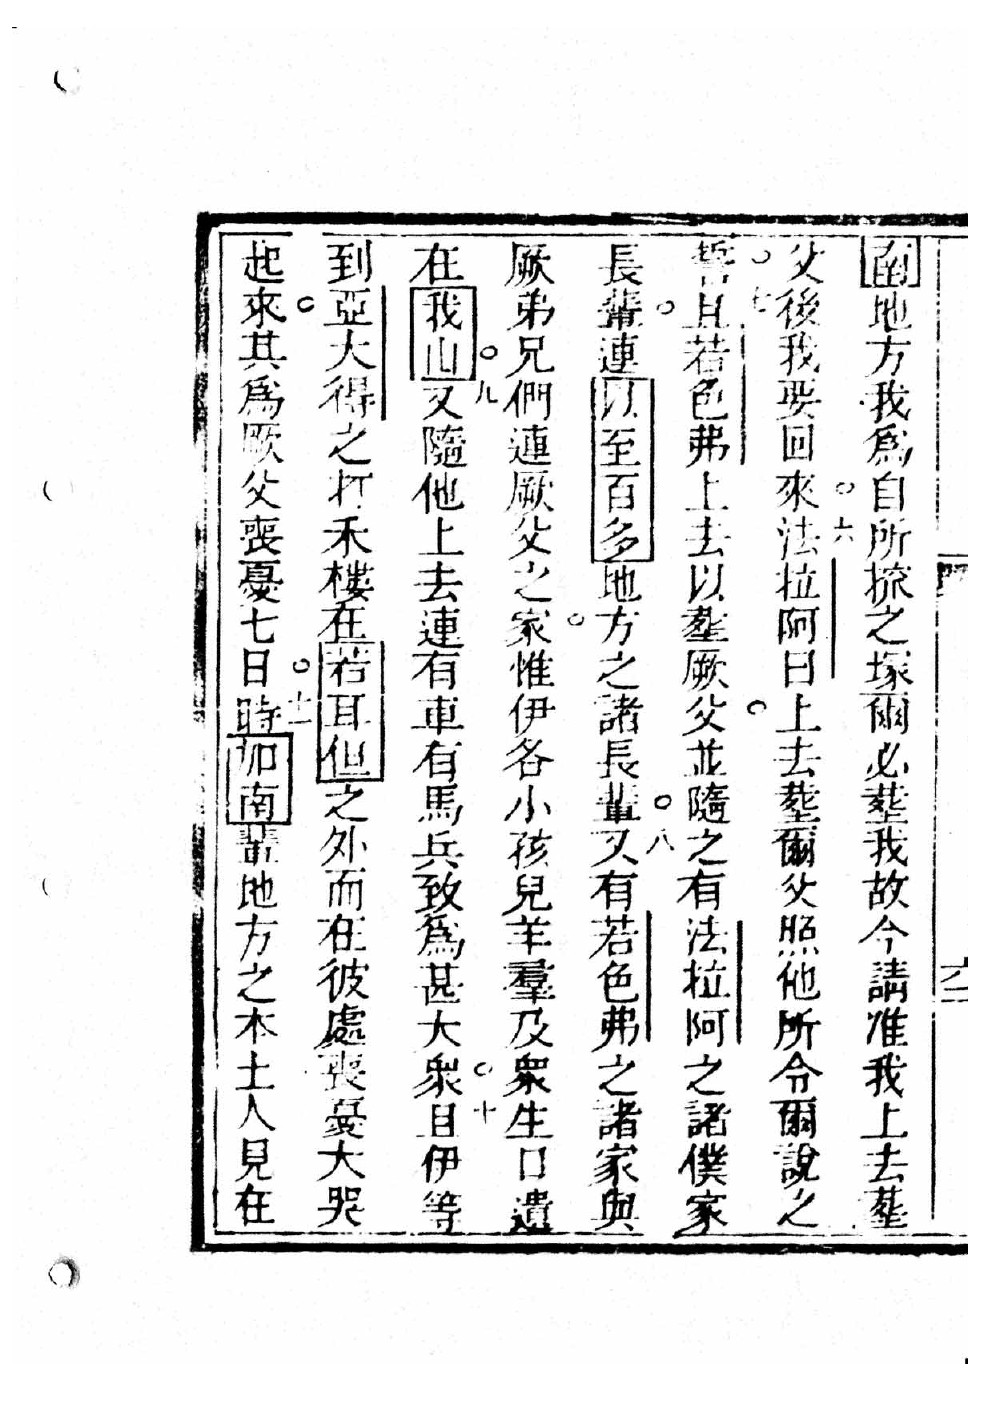 南地方我爲自所掘之塚爾必塟我故今請准我上去塟
父後我要回來法拉阿曰上去塟爾父照他所令爾說之
六
誓且若色弗上去以塟厥父並隨之有法拉阿之諸僕家
七
長輩連以至百多地方之諸長輩又有若色弗之諸家與
八
厥弟兄們連厥父之家惟伊各小孩兒羊羣及衆生口遺
在我山又隨他上去連有車有馬兵致爲甚大衆且伊等
九
十
到亞大得之打禾樓在若耳但之外而在彼處喪憂大哭
起來其爲厥父喪憂七日時加南輩地方之本土人見在
十一